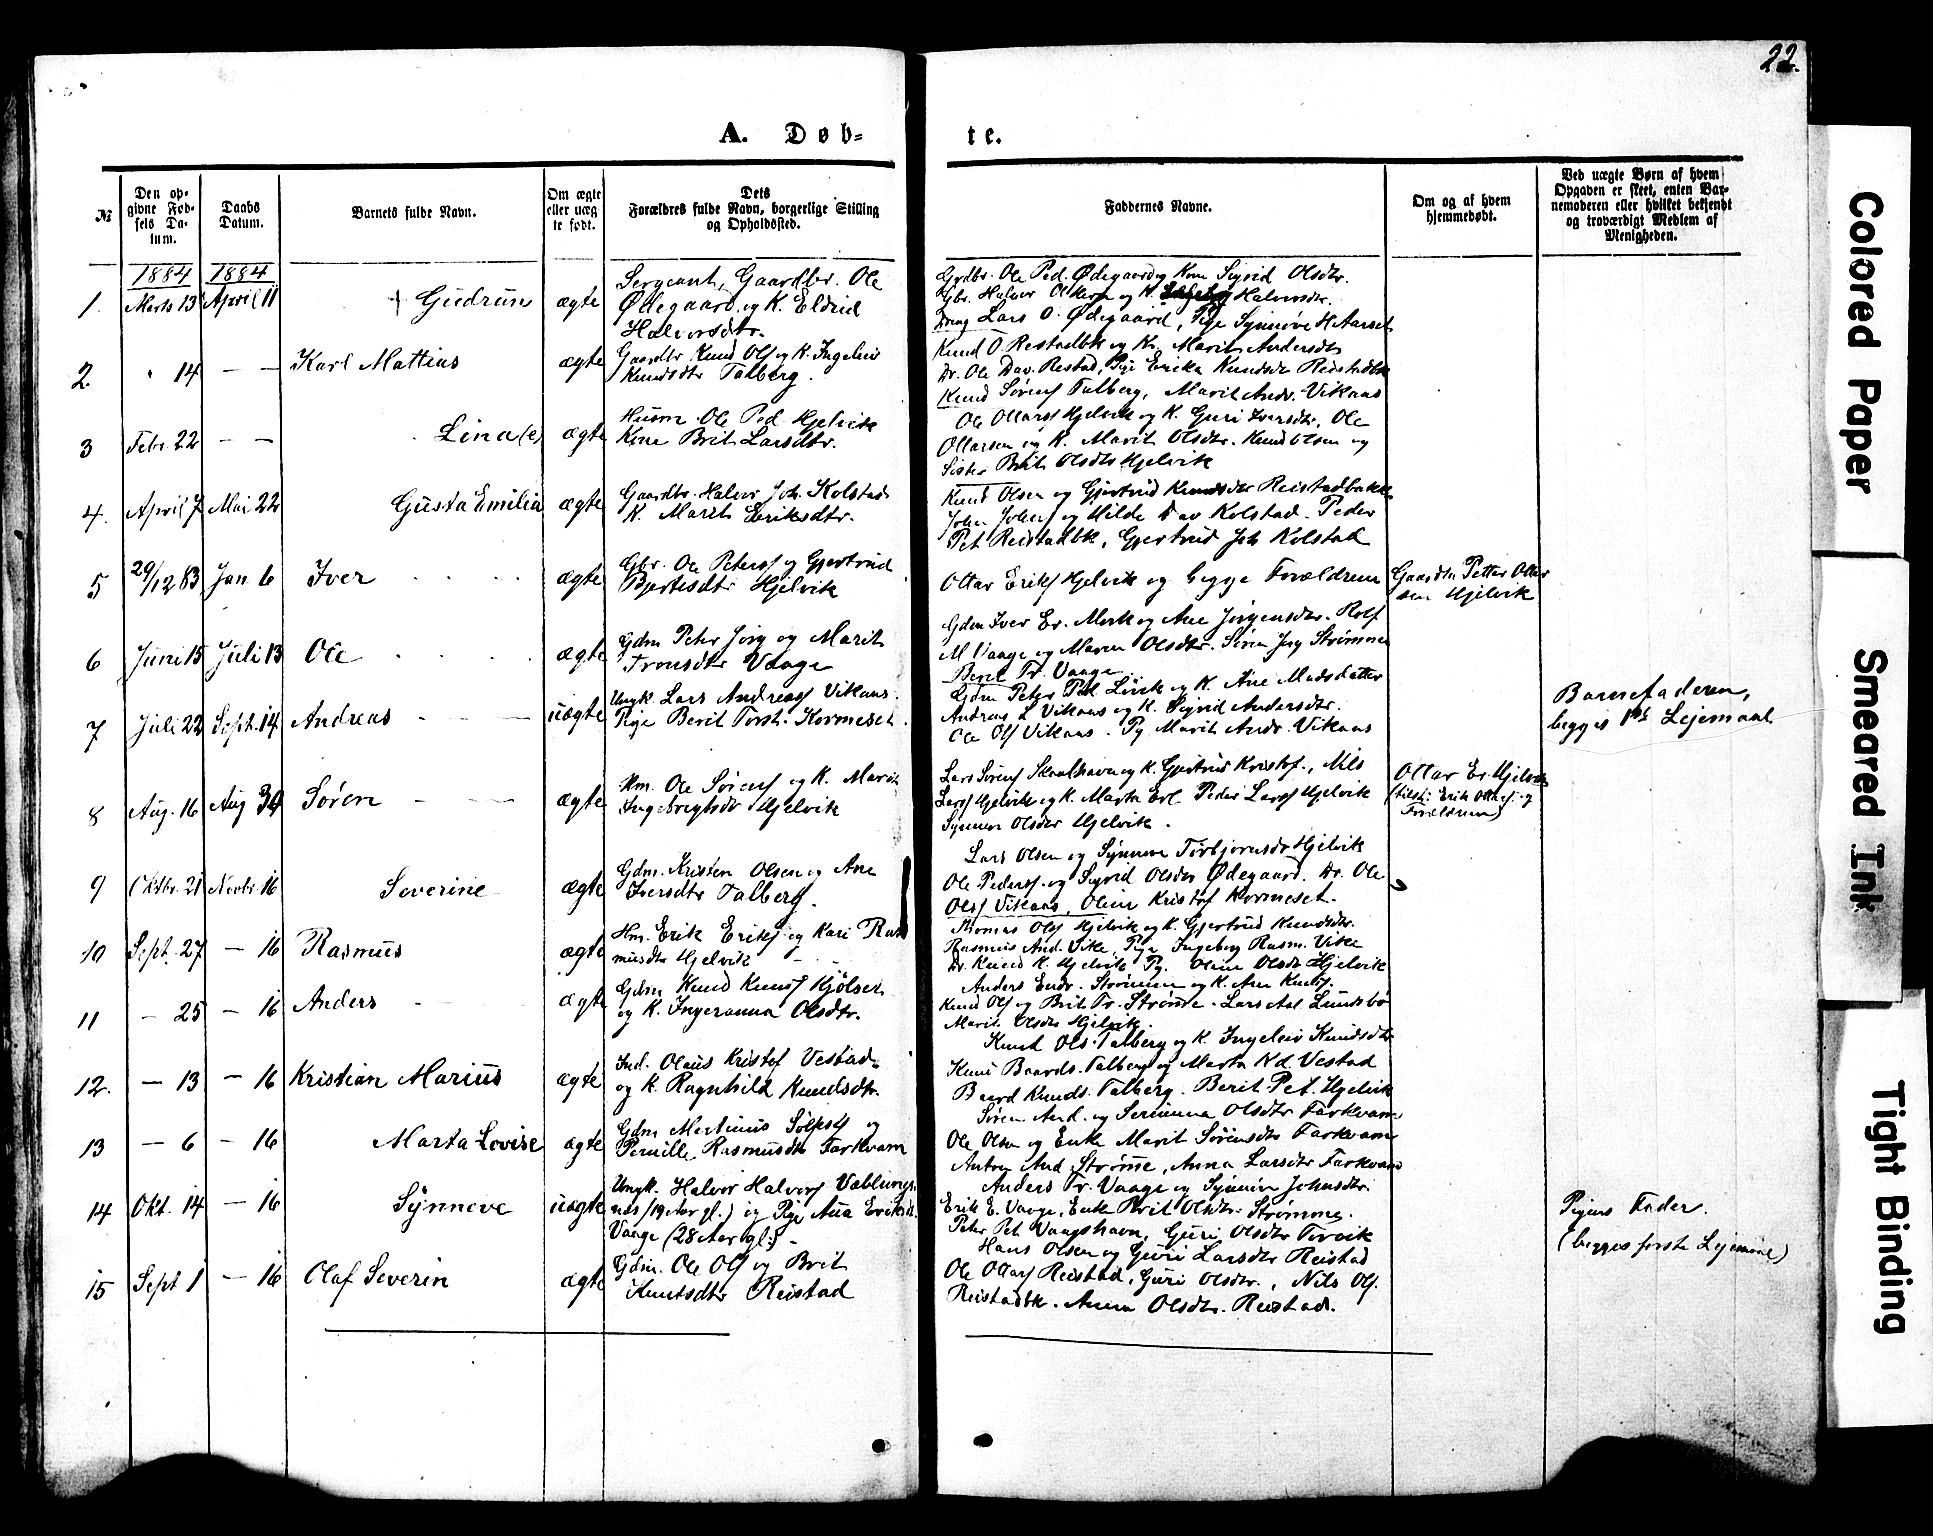 22.
A. Døb-
te.
№
Den op-
givne Fød-
sels Da-
tum.
Daabs
Datum.
Barnets fulde Navn.
Om ægte
eller uæg-
te født.
Dets
Forældres fulde Navn, borgerlige Stilling
og Opholdssted.
Faddernes Navne.
Om og af hvem
hjemmedøbt.
Ved uægte Børn af hvem
Opgaven er skeet, enten Bar-
nemoderen eller hvilket bekjendt
og troværdigt Medlem af
Menigheden.
1884 1884
1. Marts 13 April 11 † Gudrun ægte
Sergeant, Gaardbr. Ole
Ødegaard og K. Eldrid
Halvorsdtr.
Grdbr. Ole Ped. Ødegaard og Kone Sigrid Olsdtr.
Gbr. Halvor Olsen og K. Halvorsdtr.
Dreng Lars O. Ødegaard, Pige Synnøve H Aarset
2. " 14 — — Karl Mattias ægte
Gaardbr Knud Ols og K. Ingeleiv
Knudsdtr Talberg.
Knud O Restadbk og K. Marit Andersdtr
Dr. Ole Dav. Restad, Pige Erika Knudsdr Reistadbk
Knud Sørens Talberg, Marit Andr. Vikaas
3 Febr 22 — — Lina(e) ægte
Husm. Ole Ped. Hjelvik
Kone Brit Larsdtr.
Ole Ottars Hjelvik og K. Guri Iversdtr, Ole
Ottarsen og K. Marit Olsdtr. Knud Olsen og
Sister Brit Olsdtr Hjelvik
4. April 7 Mai 22 Gusta Emilia ægte
Gaardbr. Halvor Joh. Kolstad
K. Marit Eriksdtr.
Knud Olsen og Gjertrud Knudsdtr Reistadbakk
John Johns og Hilde Dav Kolstad. Peder
Pet Reistadbk, Gjertrud Joh Kolstad
5 29/12 83 Jan 6 Iver ægte
Gbr. Ole Peters og Gjertrud
Bjertesdtr Hjelvik
Ottar Eriks Hjelvik og begge Forældrene
Gaardbr Petter Ottar
sen Hjelvik
6 Juni 15 Juli 13 Ole ægte
Gdm Peter Jørg og Marit
Tronsdtr Vaage
Gdm Iver Er. Mork og Ane Jørgensdtr. Rolf
M Vaage og Maren Olsdtr. Søren Jørg Strømme
Berit Tr. Vaage
7 Juli 22 Sept. 14 Andreas uægte
Ungk. Lars Andreas Vikaas.
Pige Berit Torst. Kormeset.
Gdm Peter Pet Lervik og K. Ane Madsdatter
Andreas L Vikaas og K. Sigrid Andersdtr.
Ole Ols Vikaas. Pg Marit Andr. Vikaas
Barnefaderen,
begges 1ste Lejemaal
8 Aug. 16 Aug Søren ægte
Hm. Ole Sørens og K. Marit
Ingebregtsdr Hjelvik
Lars Sørens Skaalhavn og K. Gjertrud Kristof., Nils
Lars Hjelvik og K. Marta Erl. Peder Lars Hjelvik
Synneve Olsdtr Hjelvik.
Ottar Er. Hjelvik
(tilst: Erik Ottars. og
Forældrene)
9 Oktbr. 21 Novbr. 16 Severine ægte
Gdm. Kristen Olsen og Ane
Iversdtr Talberg.
Lars Olsen og Synneve Torbjørnsdr Hjelvik
Ole Peders. og Sigrid Olsdtr Ødegaard. Dr. Ole
Ols Vikaas, Oline Kristof Kormeset.
10 Sept. 27 — 16 Rasmus ægte
Hm. Erik Eriks og Kari Ras
musdtr Hjelvik
Thomas Ols Hjelvik og K. Gjertrud Knudsdtr.
Rasmus And. Vike, Pige Ingeborg Rasm. Vike
Dr. Knud K. Hjelvik Pg. Oline Olsdtr Hjelvik
11 — 25 — 16 Anders ægte
Gdm Knud Knuds Hjølset
og K. Ingeranna Olsdtr.
Anders Endr. Strømme og K. Ane Knuds.
Knud Ols og Brit Tr. Strømme. Lars Asl Lundsbø
Marit Olsdtr Hjelvik.
12. — 13 — 16 Kristian Marius ægte
Ind. Olaus Kristof Vestad
og K Ragnhild Knudsdtr.
Knut Ols. Talberg og K. Ingeleiv Knudsdtr
Knut Baards. Talberg og Marta Kd. Vestad
Baard Knuds. Talberg. Berit Pet. Hjelvik
13 — 6 — 16 Marta Lovise ægte
Gdm Martinus Sølfests og
Pernille Rasmusdtr Farkvam
Søren And. og Serianna Olsdtr Farkvam
Ole Olsen og Enke Marit Sørensdtr Farkvam
Anton And Strømme, Anna Larsdtr Farkvam
14 Okt. 14 — 16 Synneve uægte
Ungk. Halvor Halvors Væblungs
nes (19 Aar gl.) og Pige Ana Eriksdt.
Vaage (28 Aar gl:) -
Anders Tr. Vaage og Synnøve Johnsdtr.
Erik E. Vaage, Enke Brit Olsdtr. Strømme.
Peter Pet Vaagshavn, Guri Olsdtr Torvik
Pigens Fader.
(begges første Lejemaal)
15 Sept 1 — 16 Olaf Severin ægte
Gdm. Ole Ols og Brit
Knutsdtr Reistad
Hans Olsen og Guri Larsdtr Reistad
Ole Ottars Reistad, Guri Olsdtr., Nils Ols.
Reistadbk. Anna Olsdtr. Reistad.
Colored Paper
Smeared Ink
Tight Binding